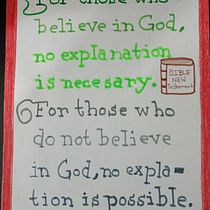 For those who
believe in God,
no explanation
is necesary.
BIBLE
NEW
Testament
For those who
do not believe
in God, no expla-
tion is possible.